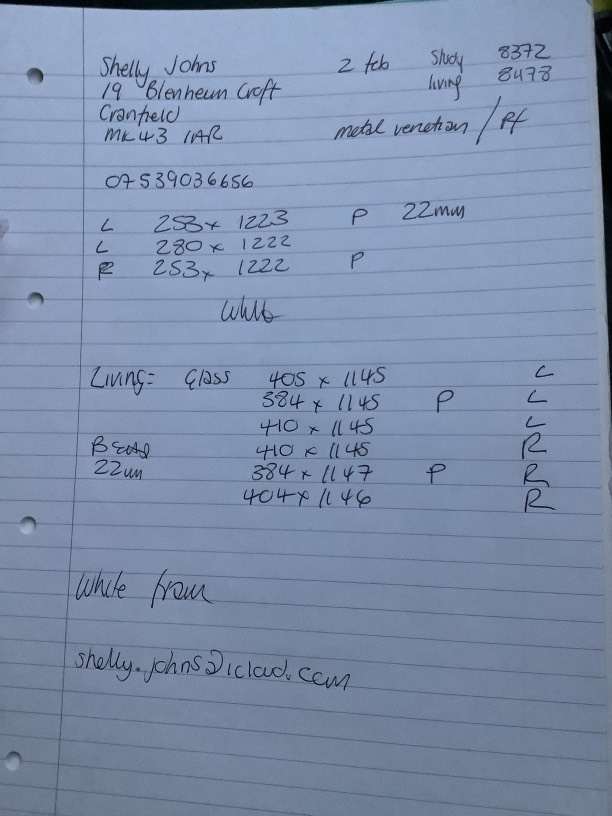 Shelly Johns 2 feb Study 8372
19 Blenheim Croft living 8478
Cranfield
MK43 1AR metal venetian / Pf
07539036656
L 253 x 1223 P 22mm
L 280 x 1222
R 253 x 1222 P
White
Living = Glass 405 x 1145 L
384 x 1145 P L
410 x 1145 L
410 x 1145 R
22mm 384 x 1147 P R
404 x 1146 R
White fram
shelly.johns@iclad.com